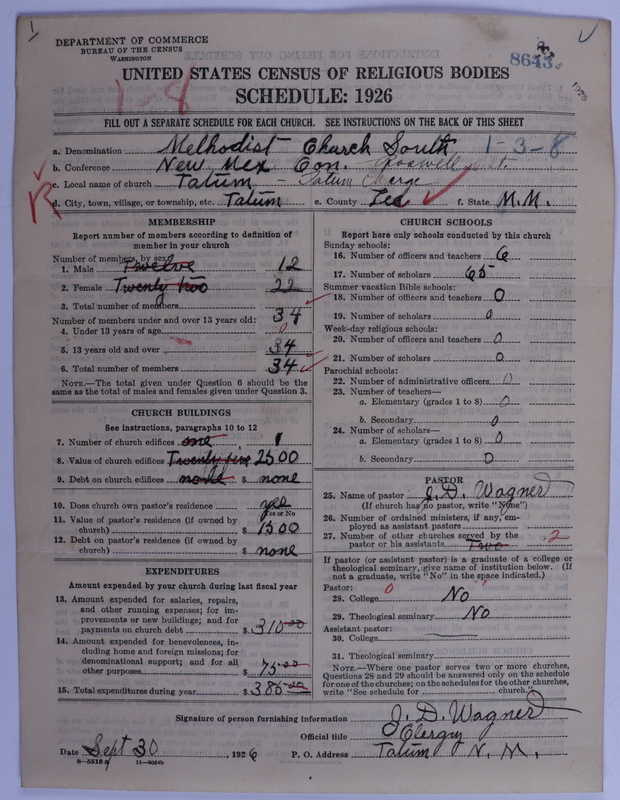 1
DEPARTMENT OF COMMERCE
BUREAU OF THE CENSUS
WASHINGTON
8643
1926
UNITED STATES CENSUS OF RELIGIOUS BODIES
1-8
SCHEDULE: 1926
FILL OUT A SEPARATE SCHEDULE FOR EACH CHURCH. SEE INSTRUCTIONS ON THE BACK OF THIS SHEET
a. Denomination Methodist Church South 1-3-8
b. Conference New Mex Con. Roswell Dist.
c. Local name of church Tatum - Tatum Charge
R
d. City, town, village, or township, etc. Tatum e. County Lea f. State N.M.
MEMBERSHIP
Report number of members according to definition of
member in your church
Number of members, by sex:
1. Male Twelve 12
2. Female Twenty two 22
3. Total number of members 34
Number of members under and over 13 years old:
4. Under 13 years of age 0
5. 13 years old and over 34
6. Total number of members 34
NOTE.—The total given under Question 6 should be the
same as the total of males and females given under Question 3.
CHURCH BUILDINGS
See instructions, paragraphs 10 to 12
7. Number of church edifices one 1
8. Value of church edifices Twenty five 2500
9. Debt on church edifices none $ none
10. Does church own pastor's residence yes
Yes or No
11. Value of pastor's residence (if owned by
church) $ 1500
12. Debt on pastor's residence (if owned by
church) $ none
EXPENDITURES
Amount expended by your church during last fiscal year
13. Amount expended for salaries, repairs,
and other running expenses; for im-
provements or new buildings; and for
payments on church debt $ 310 00
14. Amount expended for benevolences, in-
cluding home and foreign missions; for
denominational support; and for all
other purposes $ 75 00
15. Total expenditures during year $ 385 00
CHURCH SCHOOLS
Report here only schools conducted by this church
Sunday schools:
16. Number of officers and teachers 6
17. Number of scholars 65
Summer vacation Bible schools:
18. Number of officers and teachers 0
19. Number of scholars 0
Week-day religious schools:
20. Number of officers and teachers 0
21. Number of scholars 0
Parochial schools:
22. Number of administrative officers 0
23. Number of teachers—
a. Elementary (grades 1 to 8) 0
b. Secondary 0
24. Number of scholars—
a. Elementary (grades 1 to 8) 0
b. Secondary 0
PASTOR
25. Name of pastor J. D. Wagner
(If church has no pastor, write "None")
26. Number of ordained ministers, if any, em-
ployed as assistant pastors
27. Number of other churches served by the
pastor or his assistants Two 2
If pastor (or assistant pastor) is a graduate of a college or
theological seminary, give name of institution below. (If
not a graduate, write "No" in the space indicated.)
Pastor:
28. College 0 No
29. Theological seminary No
Assistant pastor:
30. College
31. Theological seminary
NOTE.—Where one pastor serves two or more churches,
Questions 28 and 29 should be answered only on the schedule
for one of the churches; on the schedules for the other churches,
write "See schedule for church."
Signature of person furnishing information J. D. Wagner
Official title Clergy
Date Sept 30, 1926 P. O. Address Tatum N. M.
8-5518 a